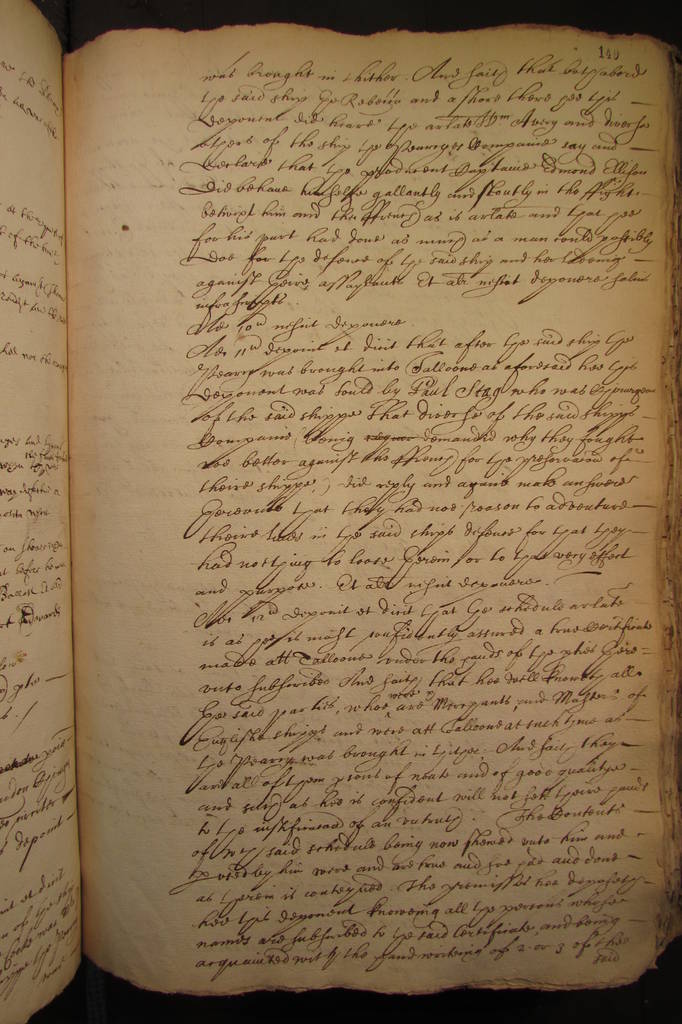 140
was brought in thither. And saith that both abord
the said ship the Rebecca and ashore there hee this
deponent did heare the arlate Wm Avery and diverse
others of the ship the Pearryes Companie say and
declare that the producent Captaine Edmond Ellison
did behave himselfe gallantly and stoutly in the ffight
betwixt him and the ffrench as is arlate and that hee
for his part had done as much as a man could possibly
doe for the defence of the said ship and her
against theire assaylants Et alr nescit deponere salvis
infrascriptis.
Ad 10um nescit deponere.
Ad 11um deponit et dicit that after the said ship the
Pearry was brought into Talloone as aforesaid hee this
deponent was tould by Paul Stagg who was Chyrurgeon
of the said shippe That diverse of the said shipps
Companie (being demanded why they fought
noe better against the ffrench for the preservation of
theire shippe,) did reply and againe make answere
thereunto that they had noe reason to adventure
theire lives in the said ships defence for that they
had nothing to loose therein or to that very effect
and purpose. Et alr nescit deponere.
Ad 12um deponit et dicit that the schedule arlate
is as hee is most confidently assured a true Certificate
made att Talloone under the hands of the pties there
unto subscribed And saith that hee well knoweth all
the said parties, whoe were Merchants and Masters of
Englishe shipps and were att Talloone at such tyme as
the Pearry was brought in thither And saith they
are all of them prsons of note and of good qualitye
and such as hee is confident will not sett theire hands
to the of an untruth. The Contents
of the said schedule being now shewed unto him and
by him were and are true and soe had and done
as therein is conteyned. The premisses hee deposeth
hee this deponent knoweing all the persons whose
names are subscribed to the said Certificate, and being
acquainted with the handwriting of 2 or 3 of the
said